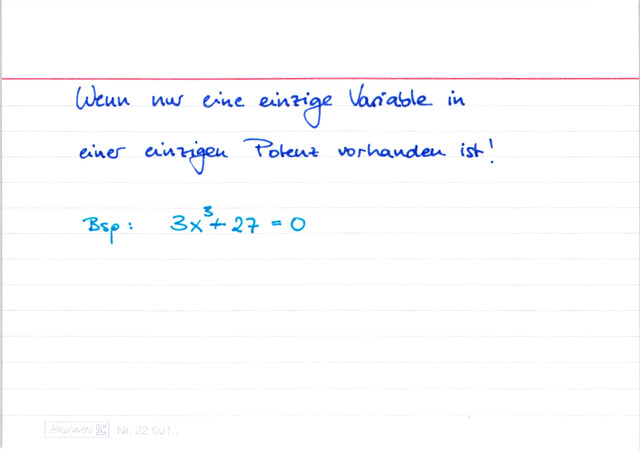 Wenn nur eine einzige Variable in
einer einzigen Potenz vorhanden ist!
Bsp: 3x³+27 = 0
BRUNNEN Nr. 22 601..